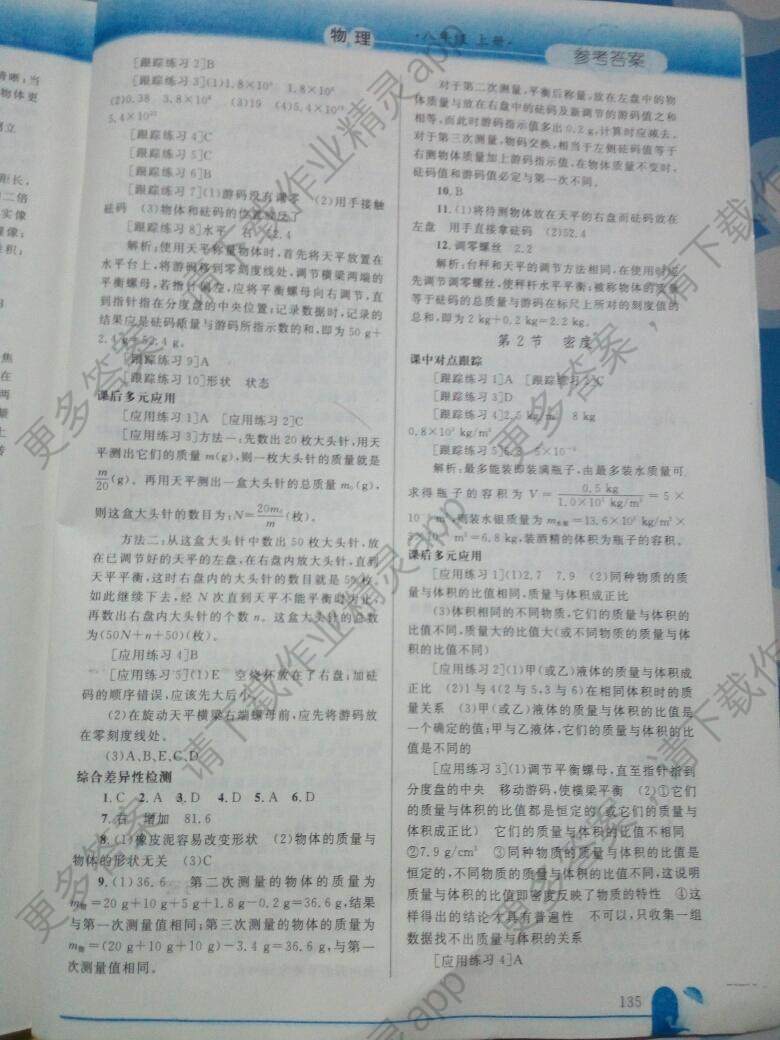 物理
·八年级 上册·
参考答案
晰；当
物体更
倒立
距长，
的二倍
实像
像；
焦
在
两
上
传
[跟踪练习2]B
[跟踪练习3](1)1.8×10
(2)0.38
(3)19
[跟踪练习4]C
[跟踪练习5]C
[跟踪练习6]B
[跟踪练习7](1)游码没有调零 (2)用手接触
砝码 (3)物体和砝码的位置放反
[跟踪练习8]水平 右 52.4
解析：使用天平称量物体时，首先将天平放置在
水平台上，将游码移到零刻度线处，调节横梁两端的
平衡螺母，若指针偏左，应将平衡螺母向右调节，直
到指针指在分度盘的中央位置；记录数据时，记录的
结果应是砝码质量与游码所指示数的和，即为50 g+
2.4 g=52.4 g。
[跟踪练习9]A
[跟踪练习10]形状 状态
课后多元应用
[应用练习1]A [应用练习2]C
[应用练习3]方法一：先数出20枚大头针，用天
平测出它们的质量m(g)，则一枚大头针的质量就是
m/20(g)。再用天平测出一盒大头针的总质量m₀(g)，
则这盒大头针的数目为：N=20m₀/m(枚)。
方法二：从这盒大头针中数出50枚大头针，放
在已调节好的天平的左盘，在右盘内放大头针，直到
天平平衡，这时右盘内的大头针的数目就是50枚。
如此继续下去，经N次直到天平不能平衡时为止，
再数出右盘内大头针的个数n。这盒大头针的总数
为(50N+n+50)(枚)。
[应用练习4]B
[应用练习5](1)E 空烧杯放在了右盘；加砝
码的顺序错误，应该先大后小。
(2)在旋动天平横梁右端螺母前，应先将游码放
在零刻度线处。
(3)A、B、E、C、D
综合差异性检测
1.C 2.A 3.D 4.D 5.A 6.D
7.右 增加 81.6
8.(1)橡皮泥容易改变形状 (2)物体的质量与
物体的形状无关 (3)C
9.(1)36.6 第二次测量的物体的质量为
m物=20 g+10 g+5 g+1.8 g−0.2 g=36.6 g，结果
与第一次测量值相同；第三次测量的物体的质量为
m物=(20 g+10 g+10 g)−3.4 g=36.6 g，与第一
次测量值相同。
对于第二次测量，平衡后称量，放在左盘中的物
体质量与放在右盘中的砝码及新调节的游码值之和
相等，而此时游码指示值多出0.2 g，计算时应减去。
对于第三次测量，物码交换，相当于左侧砝码值等于
右测物体质量加上游码指示值，在物体质量不变时，
砝码值和游码值必定与第一次不同。
10.B
11.(1)将待测物体放在天平的右盘而砝码放在
左盘 用手直接拿砝码 (2)52.4
12.调零螺丝 2.2
解析：台秤和天平的调节方法相同，在使用时应
先调节调零螺丝，使秤杆水平平衡；被称物体的质量
等于砝码的总质量与游码在标尺上所对的刻度值的
总和，即为2 kg+0.2 kg=2.2 kg。
第2节 密度
课中对点跟踪
[跟踪练习1]A [跟踪练习2]C
[跟踪练习3]D
[跟踪练习4]2.5 kg/m³ 8 kg
0.8×10³ kg/m³
[跟踪练习5]
解析：最多能装即装满瓶子，由最多装水质量可
求得瓶子的容积为V=0.5 kg/1.0×10³ kg/m³=5×
10⁻⁴ m³，则装水银质量为m水银=13.6×10³ kg/m³×
m³=6.8 kg，装酒精的体积为瓶子的容积。
课后多元应用
[应用练习1](1)2.7 7.9 (2)同种物质的质
量与体积的比值相同，质量与体积成正比
(3)体积相同的不同物质，它们的质量与体积的
比值不同，质量大的比值大(或不同物质的质量与体
积的比值不同)
[应用练习2](1)甲(或乙)液体的质量与体积成
正比 (2)1与4(2与5，3与6)在相同体积时的质
量关系 (3)甲(或乙)液体的质量与体积的比值是
一个确定的值；甲与乙液体，它们的质量与体积的比
值是不同的
[应用练习3](1)调节平衡螺母，直至指针指到
分度盘的中央 移动游码，使横梁平衡 (2)①它们
的质量与体积的比值都是恒定的(或它们的质量与
体积成正比) 它们的质量与体积的比值不相同
②7.9 g/cm³ ③同种物质的质量与体积的比值是
恒定的，不同物质的质量与体积的比值不同，这说明
质量与体积的比值即密度反映了物质的特性 ④这
样得出的结论不具有普遍性 不可以，只收集一组
数据找不出质量与体积的关系
[应用练习4]A
135
更多答案，请下载作业精灵app
更多答案，请下载作业精灵app
更多答案，请下载作业精灵app